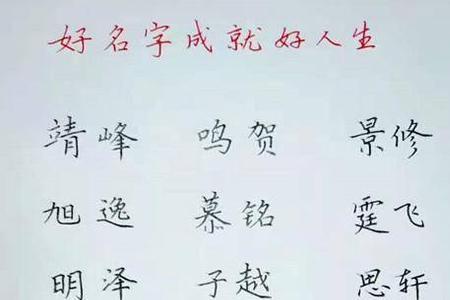 好名字成就好人生
靖峰 鸣贺 景修
旭逸 慕铭 霆飞
明泽 子越 思轩